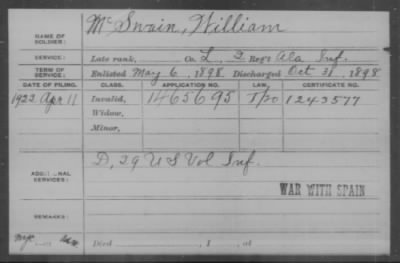 NAME OF SOLDIER: McSwain, William
SERVICE: Late rank, Co. L, 2 Reg't Ala Inf.
TERM OF SERVICE: Enlisted May 6, 1898, Discharged Oct 31, 1898
DATE OF FILING. CLASS. APPLICATION NO. LAW. CERTIFICATE NO.
1922 Apr 11 Invalid, 1465695 1243577
Widow,
Minor,
ADDITIONAL SERVICES: D, 29 U S Vol Inf.
WAR WITH SPAIN
REMARKS:
Died , 1 , at